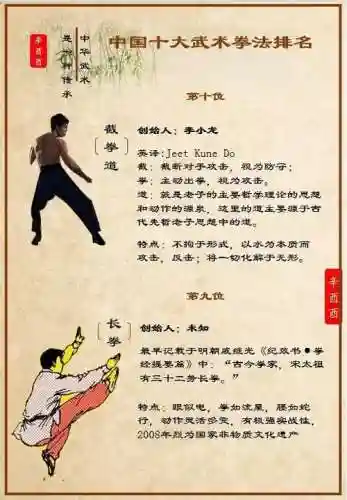 辛酉酉
中华武术
是如何传承
中国十大武术拳法排名
第十位
〔截拳道〕
创始人：李小龙
英译:Jeet Kune Do
截：截断对手攻击，视为防守；
拳：主动出拳，视为攻击。
道：就是老子的主要哲学理论的思想
和动作的源泉，这里的道主要源于古
代先哲老子思想中的道。
特点：不拘于形式，以水为本质而
攻击，反击；将一切化解于无形。
辛酉酉
第九位
〔长拳〕
创始人：未知
最早记载于明朝戚继光《纪效书•拳
经捷要篇》中：“古今拳家，宋太祖
有三十二势长拳。”
特点：眼似电，拳如流星，腰如蛇
行，动作灵活多变，有极强实战性，
2008年列为国家非物质文化遗产